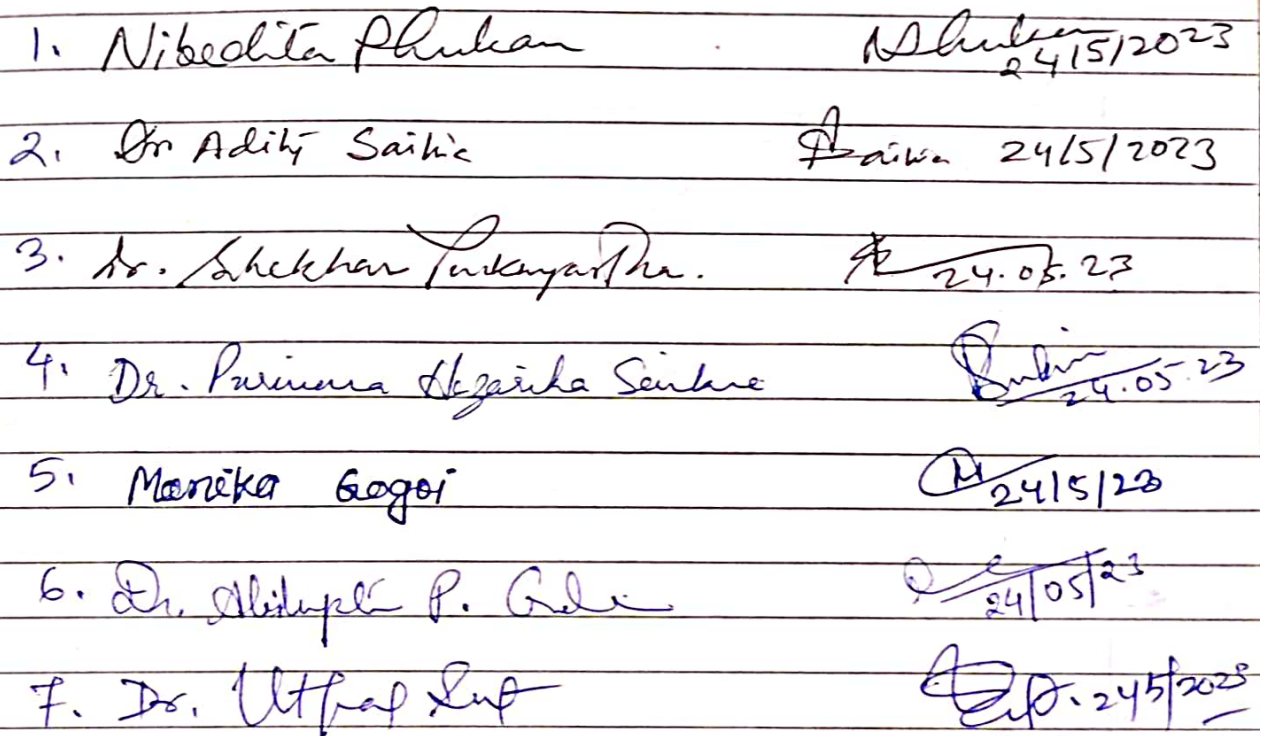 1. Nibedita Phukan 24/5/2023
2. Dr Aditi Saikia Saikia 24/5/2023
3. Dr. Shekhar Purkayastha. 24.05.23
4. Dr. Purnima Hazarika 24.05.23
5. Monika Gogoi 24/5/23
6. Dr. P. 24/05/23
7. Dr. Utpal 24/5/2023